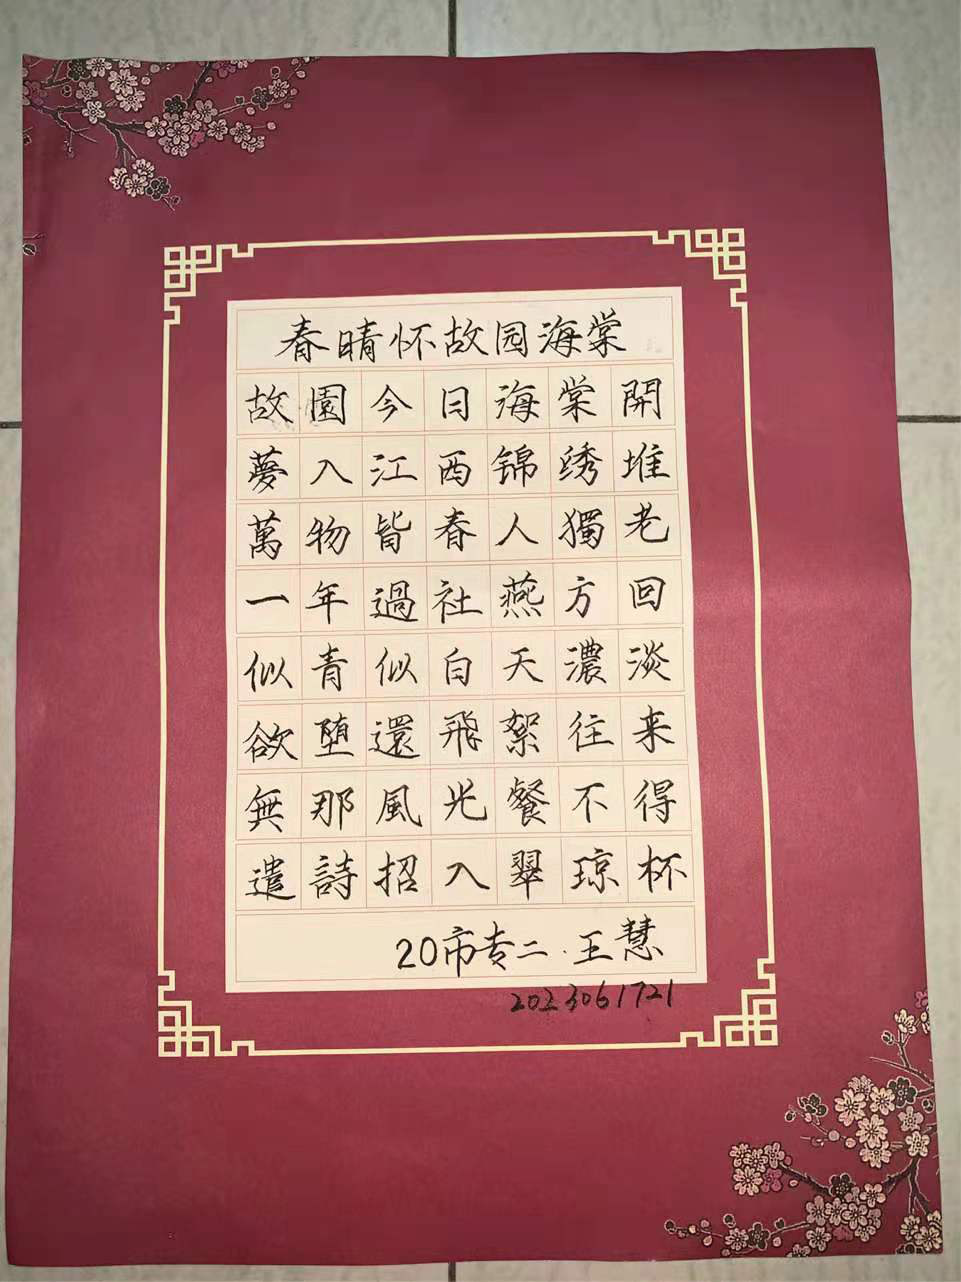 春晴怀故园海棠
故園今日海棠開
夢入江西锦绣堆
萬物皆春人獨老
一年過社燕方回
似青似白天濃淡
欲堕還飛絮往来
無那風光餐不得
遣詩招入翠琼杯
20市专二·王慧
2023061721